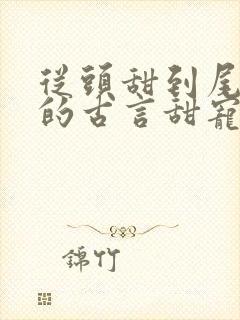 從頭甜到尾
的古言甜寵
錦竹